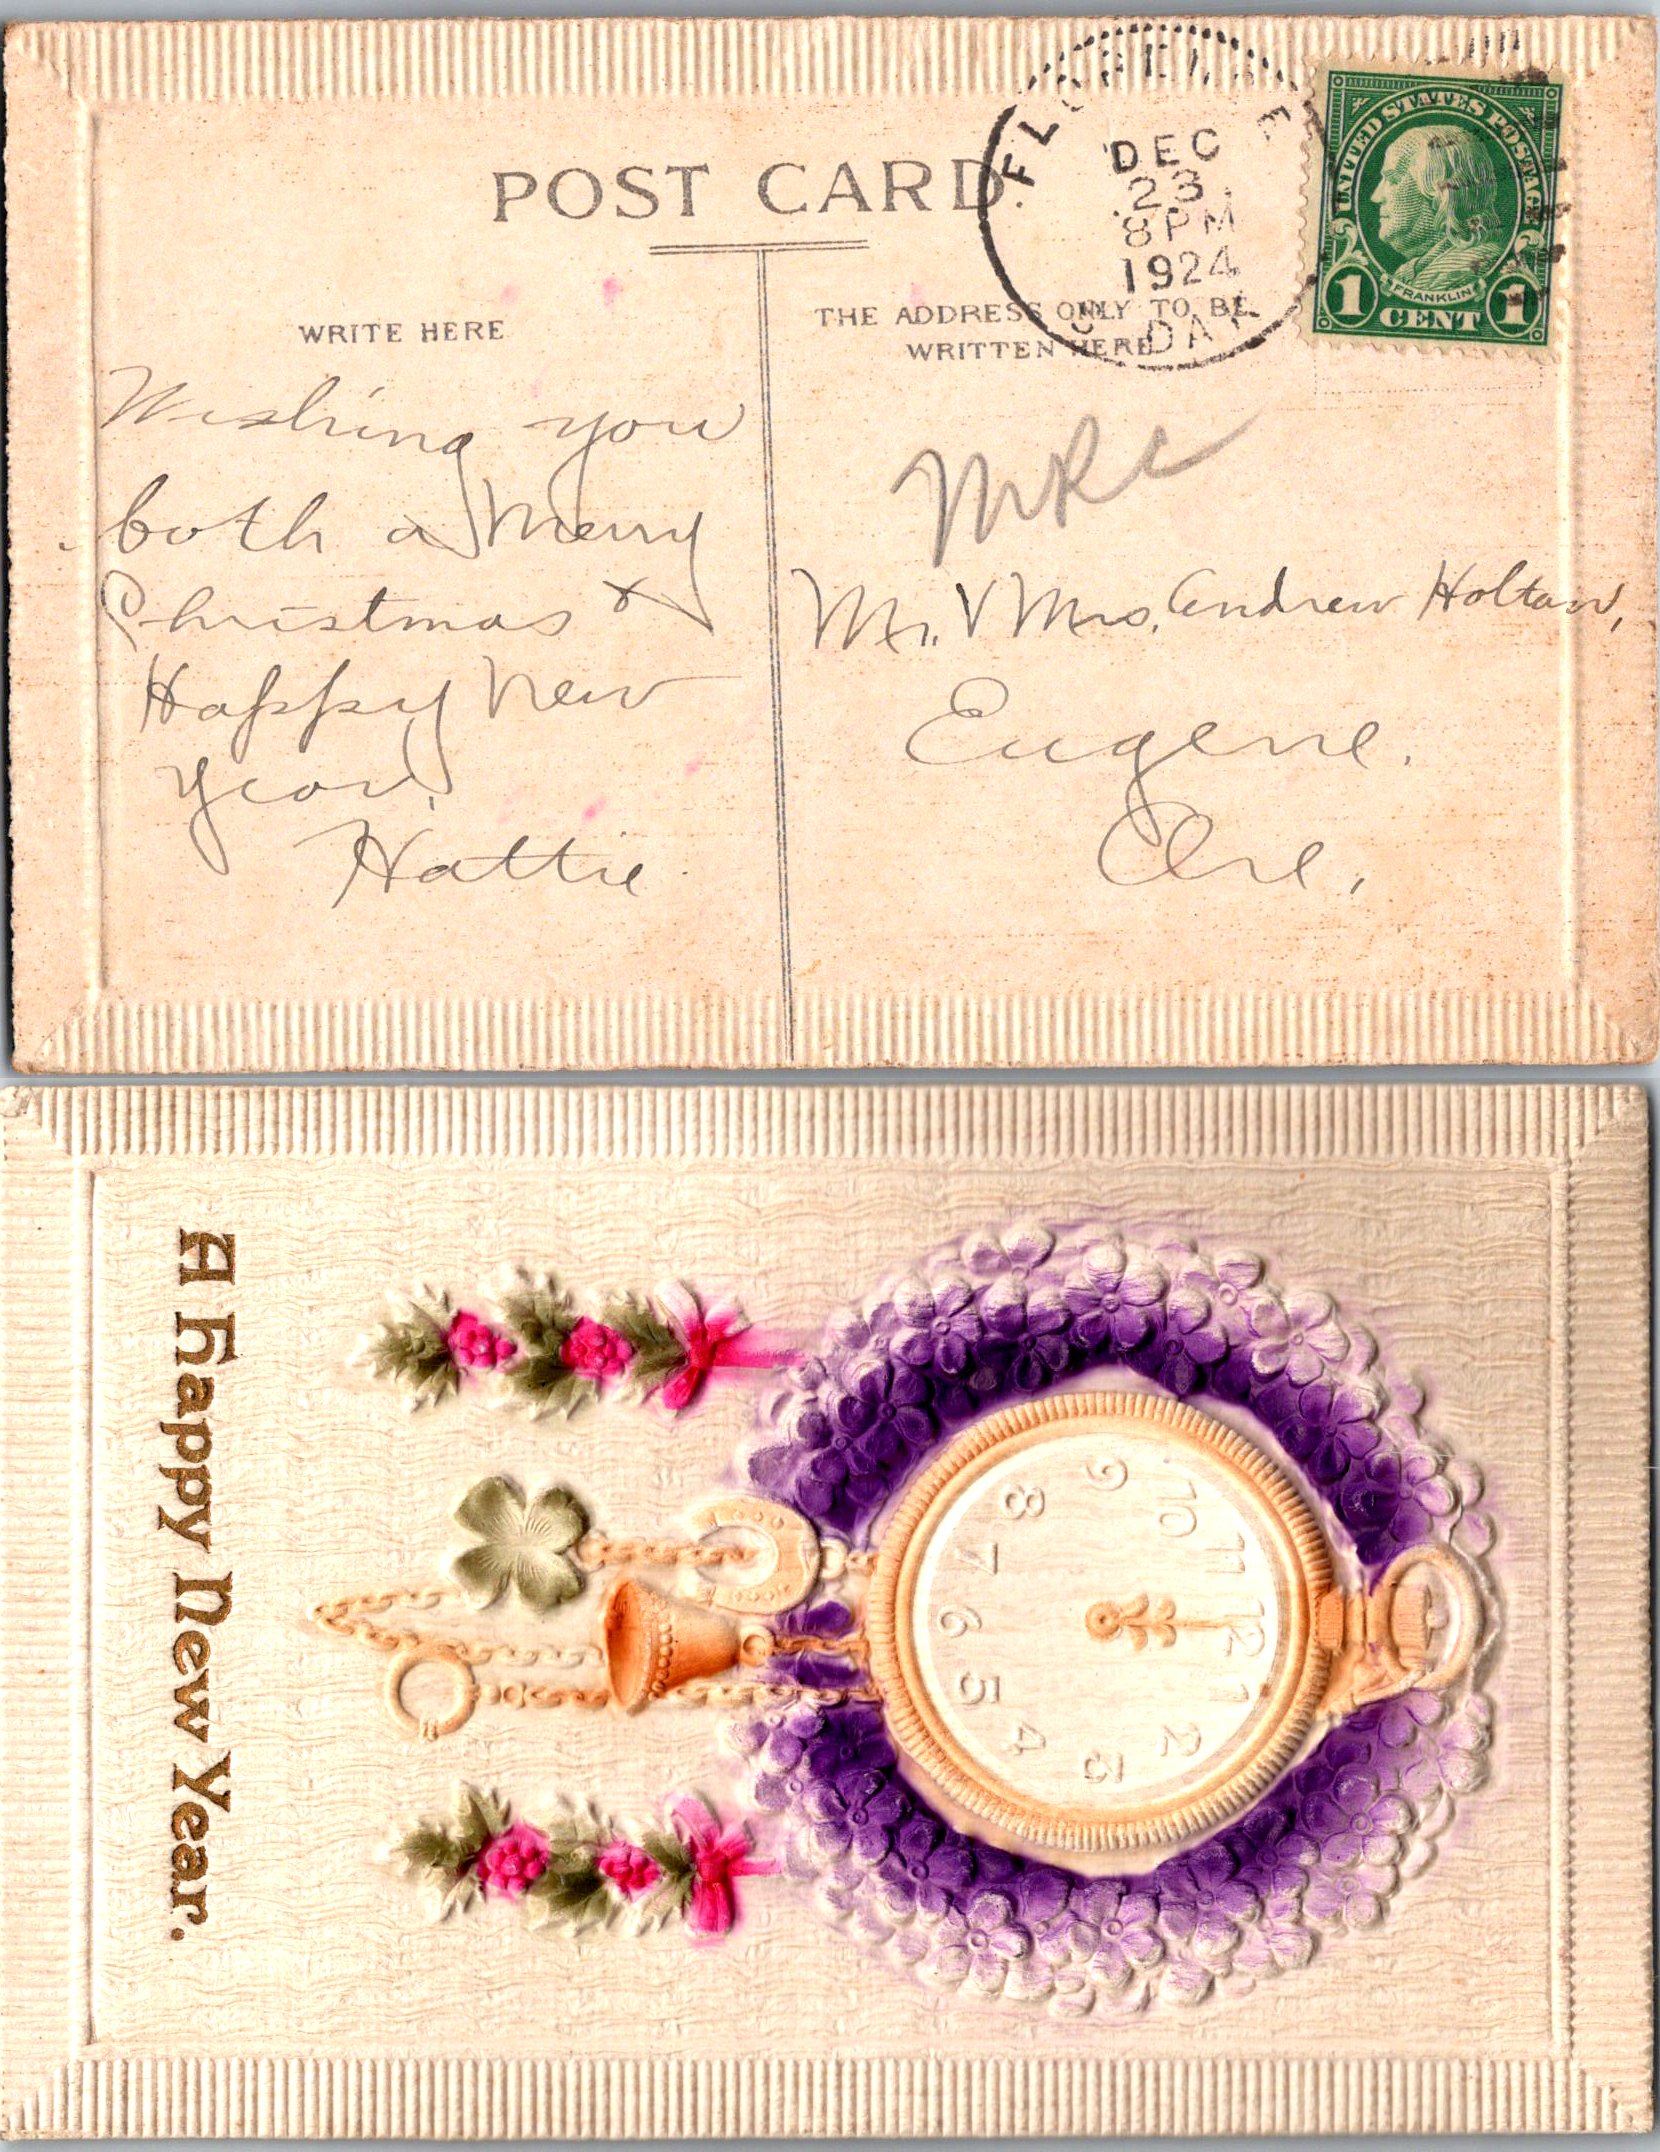 POST CARD
DEC
23
8 PM
1924
S. DAK.
UNITED STATES POSTAGE
FRANKLIN
1 CENT 1
WRITE HERE
THE ADDRESS ONLY TO BE
WRITTEN HERE
Wishing you
both a Merry
Christmas &
Happy New
Year.
Hattie.
MRC
Mr. & Mrs. Andrew
Eugene.
Ore.
A Happy New Year.
12
1
2
3
4
5
6
7
8
9
10
11